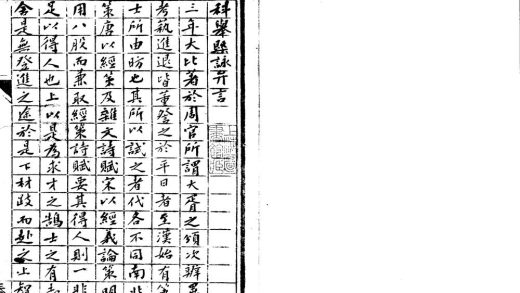 科舉雜詠弁言
三年大比著於周官所謂大胥之頒次辨異
考藝進退皆董登之於平日者至漢始有策
士所由昉也其所以試之者代各不同南北
策唐以經策及雜文詩賦宋以經義論策明
用八股而兼取經策詩賦要其得人則一非
足以得人也上以是為求才之鵠士之有志
舍是無登進之途於是下材跂而赴之上智